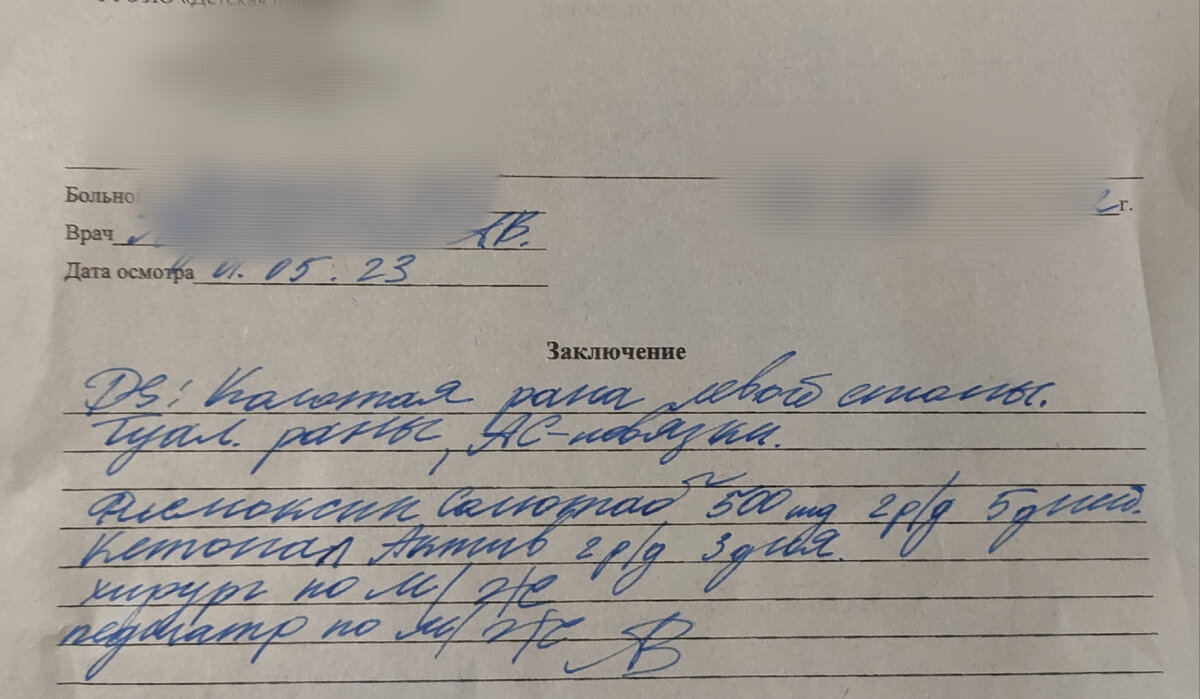 Больной
г.
Врач АВ.
Дата осмотра 05.23
Заключение
DS: Колотая рана левой стопы.
Туал. раны, АС-повязки.
Флемоксин Солютаб 500 mg 2 р/д 5 дней.
Кетонал Актив 2 р/д 3 дня.
хирург по м/ж
педиатр по м/ж